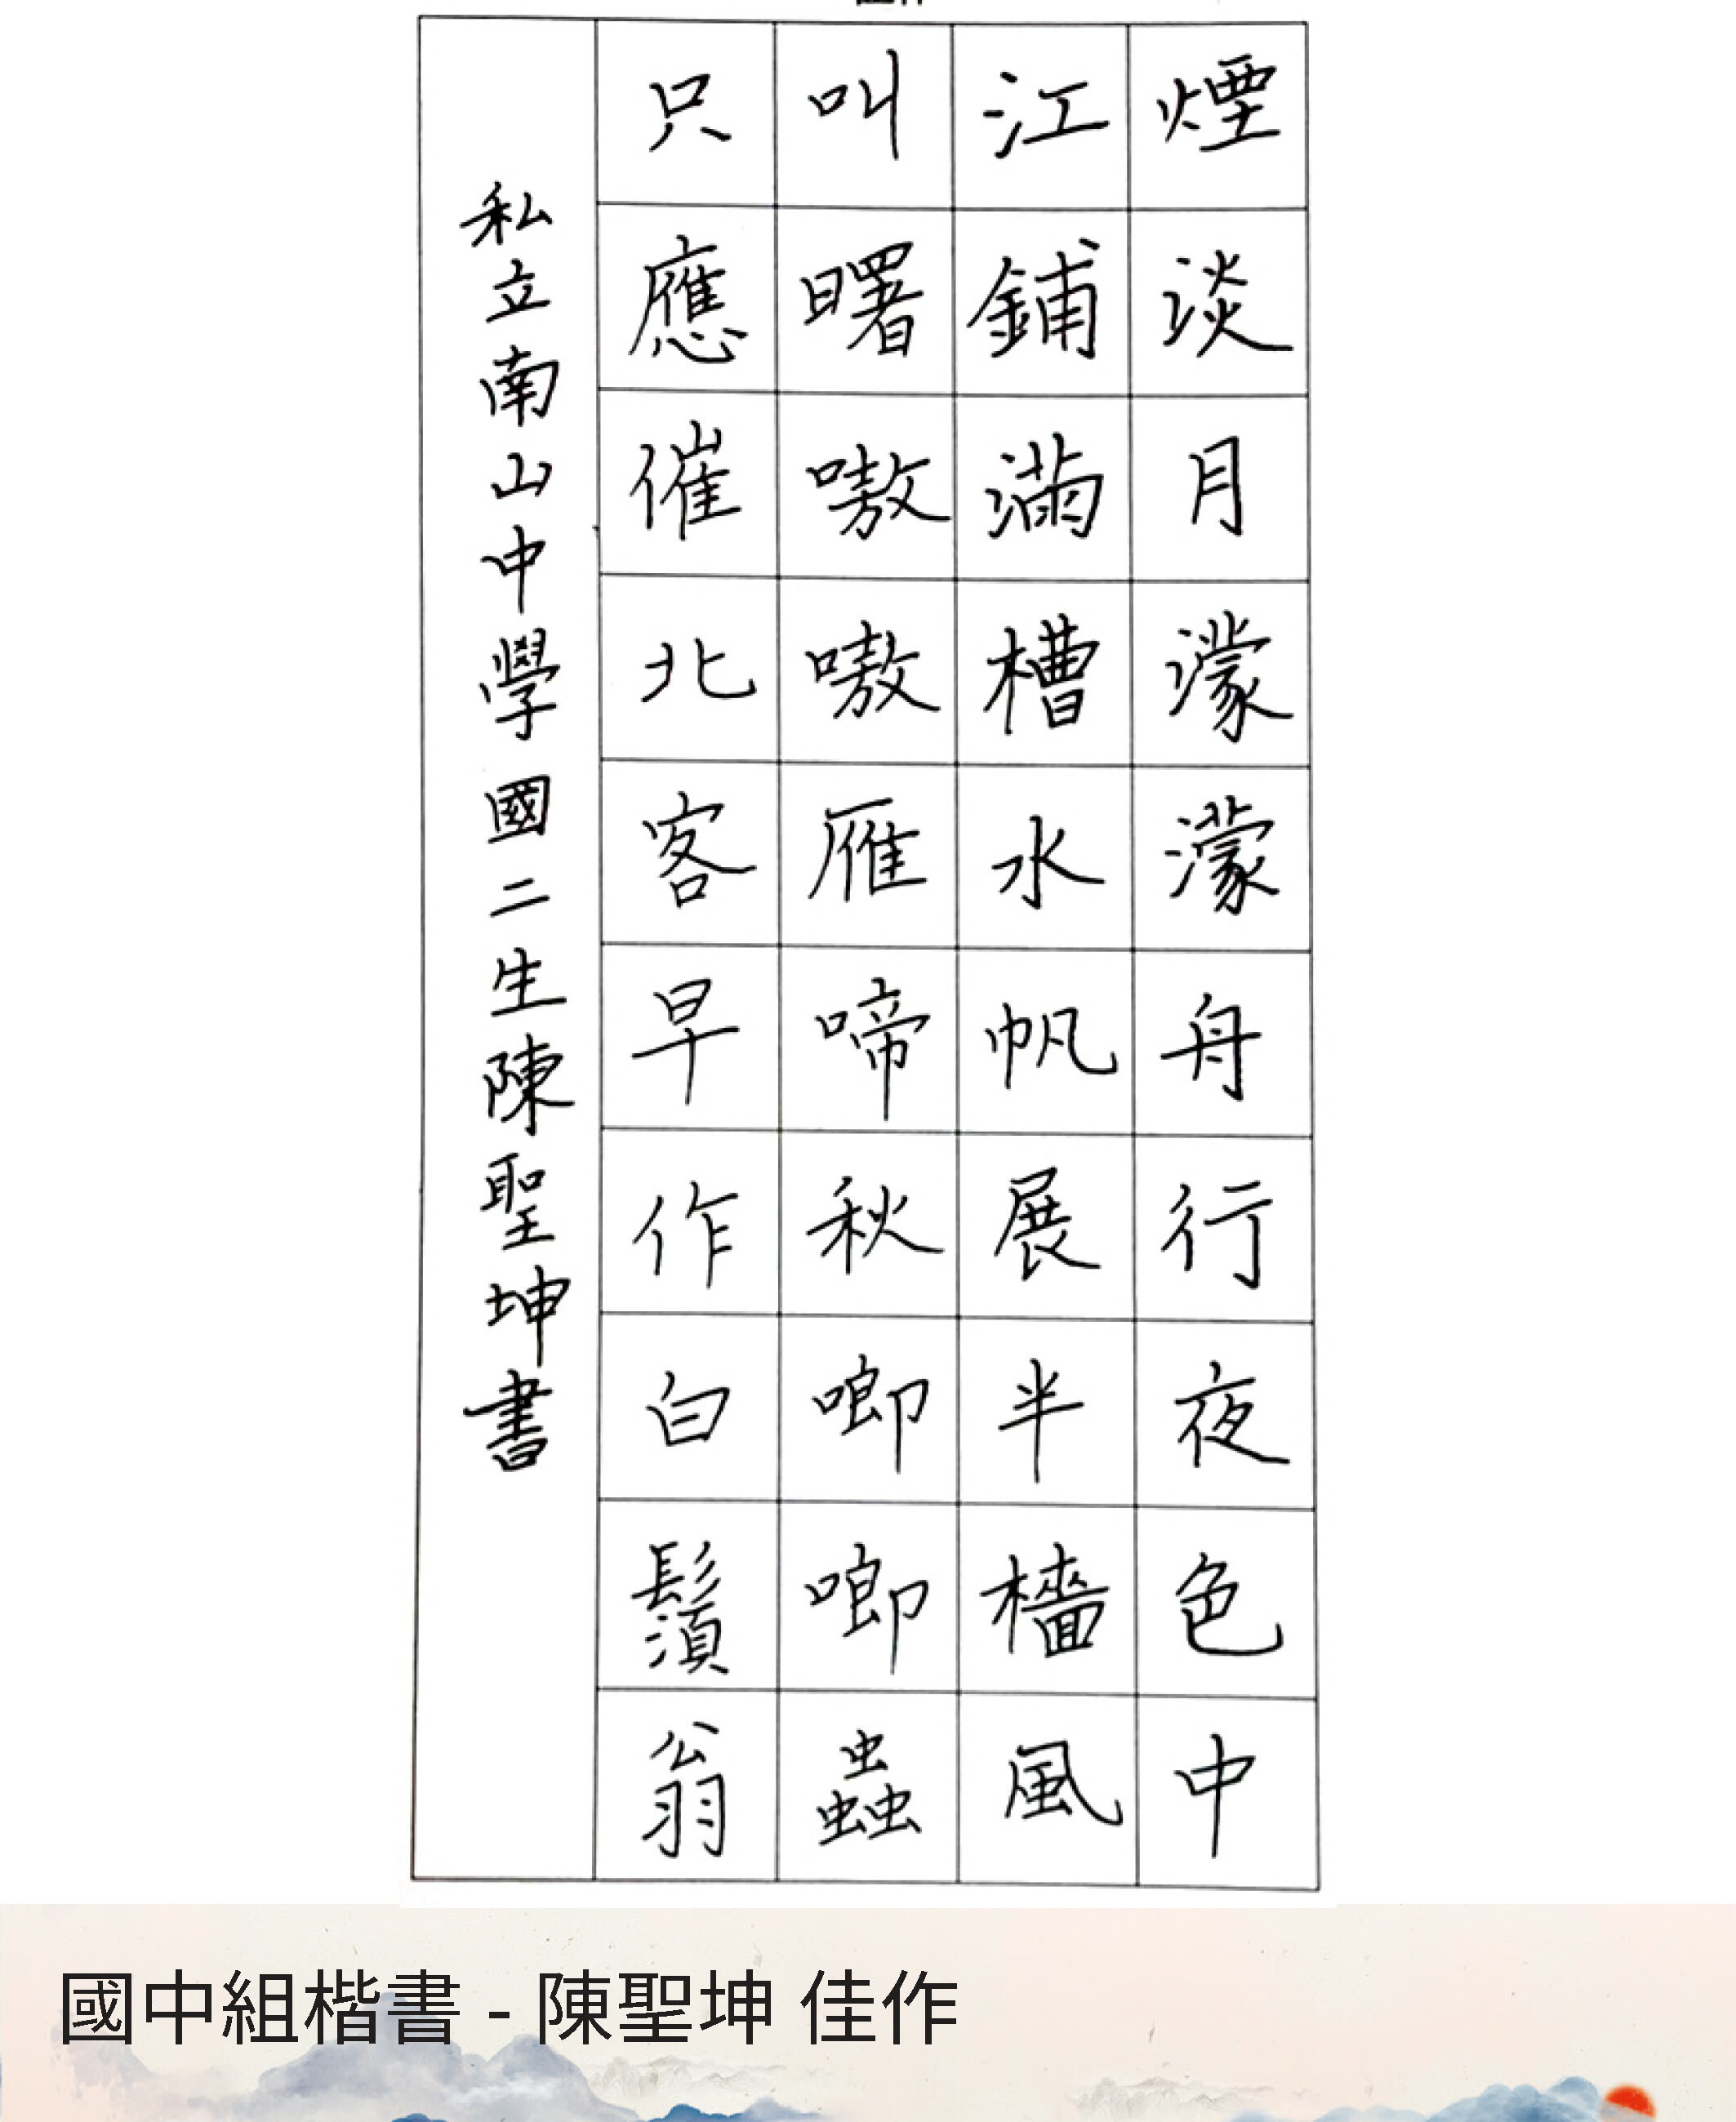 煙淡月濛濛舟行夜色中
江鋪滿槽水帆展半檣風
叫曙嗷嗷雁啼秋唧唧蟲
只應催北客早作白鬚翁
私立南山中學國二生陳聖坤書
國中組楷書 - 陳聖坤 佳作